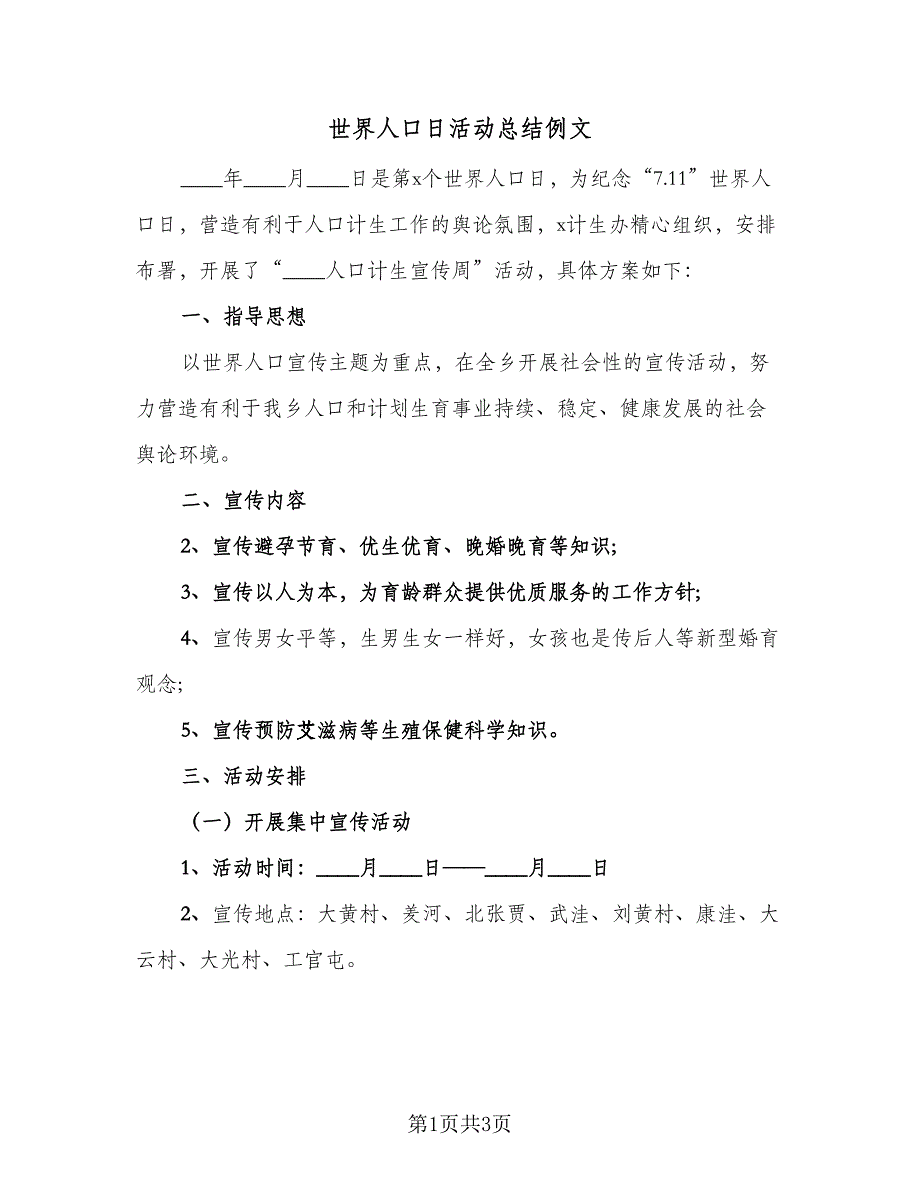 世界人口日活动总结例文
____年____月____日是第x个世界人口日，为纪念“7.11”世界人
口日，营造有利于人口计生工作的舆论氛围，x计生办精心组织，安排
布署，开展了“____人口计生宣传周”活动，具体方案如下：
一、指导思想
以世界人口宣传主题为重点，在全乡开展社会性的宣传活动，努
力营造有利于我乡人口和计划生育事业持续、稳定、健康发展的社会
舆论环境。
二、宣传内容
2、宣传避孕节育、优生优育、晚婚晚育等知识;
3、宣传以人为本，为育龄群众提供优质服务的工作方针;
4、宣传男女平等，生男生女一样好，女孩也是传后人等新型婚育
观念;
5、宣传预防艾滋病等生殖保健科学知识。
三、活动安排
（一）开展集中宣传活动
1、活动时间：____月____日——____月____日
2、宣传地点：大黄村、羑河、北张贾、武洼、刘黄村、康洼、大
云村、大光村、工官屯。
第1页共3页